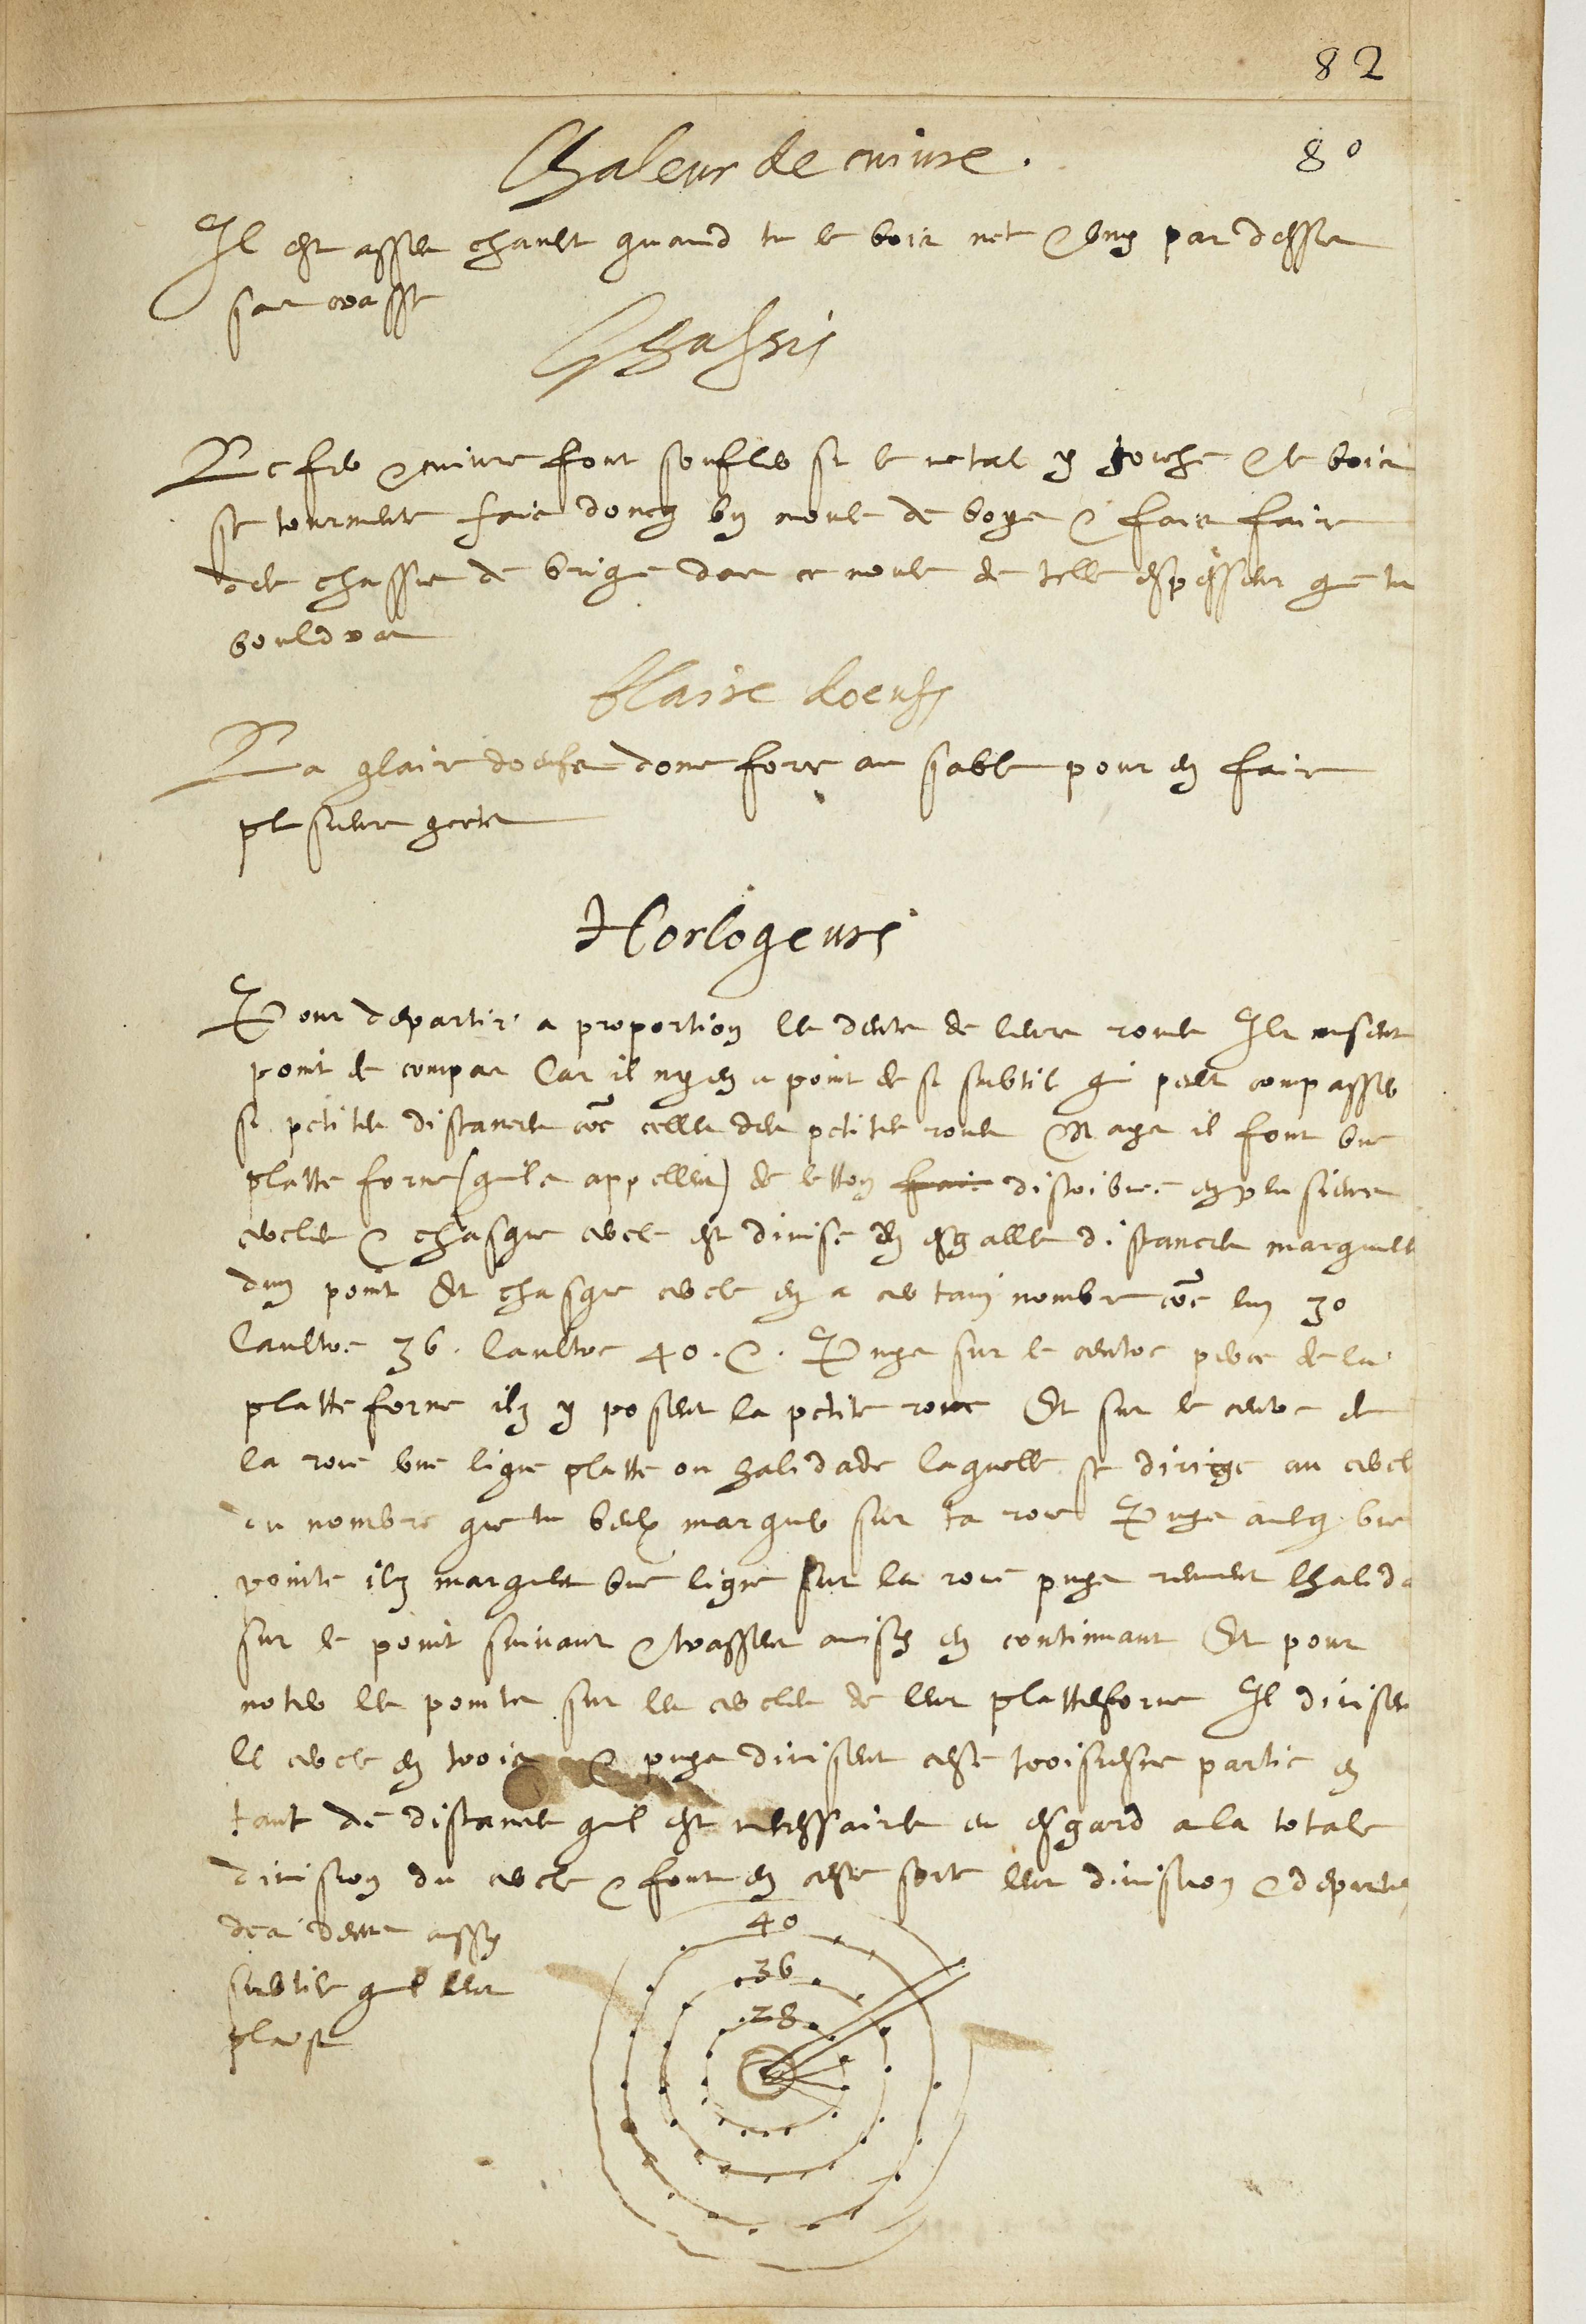 82
80
Chaleur de cuivre.
Il est asses chault quand tu le vois net & luy par dessus
sans crasse
Chassis
Le fer & cuivre font soufler si le metal y touche & le bois
se tourmente fais doncq un moule de boys & fais faire
des chassis de brique dans ce moule de telle espesseur que tu
vouldras
Glaire doeufs
La glaire doeufs donne force au sable pour en faire
plusieurs gects
Horlogeurs
Pour departir a proportion les dents de leurs roues Ils nusent
point de compas Car il ny en a point de si subtil qui peult compasser
si petites distances co{mm}e celles des petites roues Mays ils font une
platte forme (quils appellent) de letton fait distribuee en plusieurs
cercles & chasque cercle est divise en esgalles distances marquees
dun point Et chasque cercle en a certain nombre co{mm}e lun 30
laultre 36. laultre 40. &. Puys sur le centre perce de la
platte forme ilz y posent la petite roue Et sur le centre de
la roue une ligne platte ou halidade laquelle se dirige au cercle
du nombre que tu veulx marquer sur ta roue Puys avecq une
pointe ilz marquent une ligne sur la roue puys remuent lhalida
sur le point suivant & trassent ainsy en continuant Et pour
noter les points sur les cercles de leur platteforme Ils divisent
le cercle en trois & puys divisent ceste troisiesme partie en
tant de distances quil est necessaire eu esgard a la totale
division du cercle & font en ceste sorte leur division & departe
des dents aussy
subtile quil leur
plaist
40
36
28